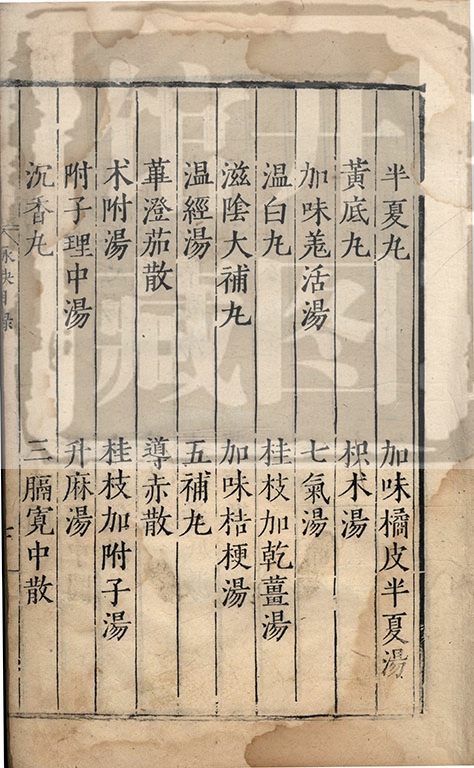 半夏丸　加味橘皮半夏湯
黃底丸　枳朮湯
加味羗活湯　七氣湯
温白丸　桂枝加乾薑湯
滋陰大補丸　加味桔梗湯
温經湯　五補丸
蓽澄茄散　導赤散
术附湯　桂枝加附子湯
附子理中湯　升麻湯
沉香丸　三膈寛中散
脉訣目録